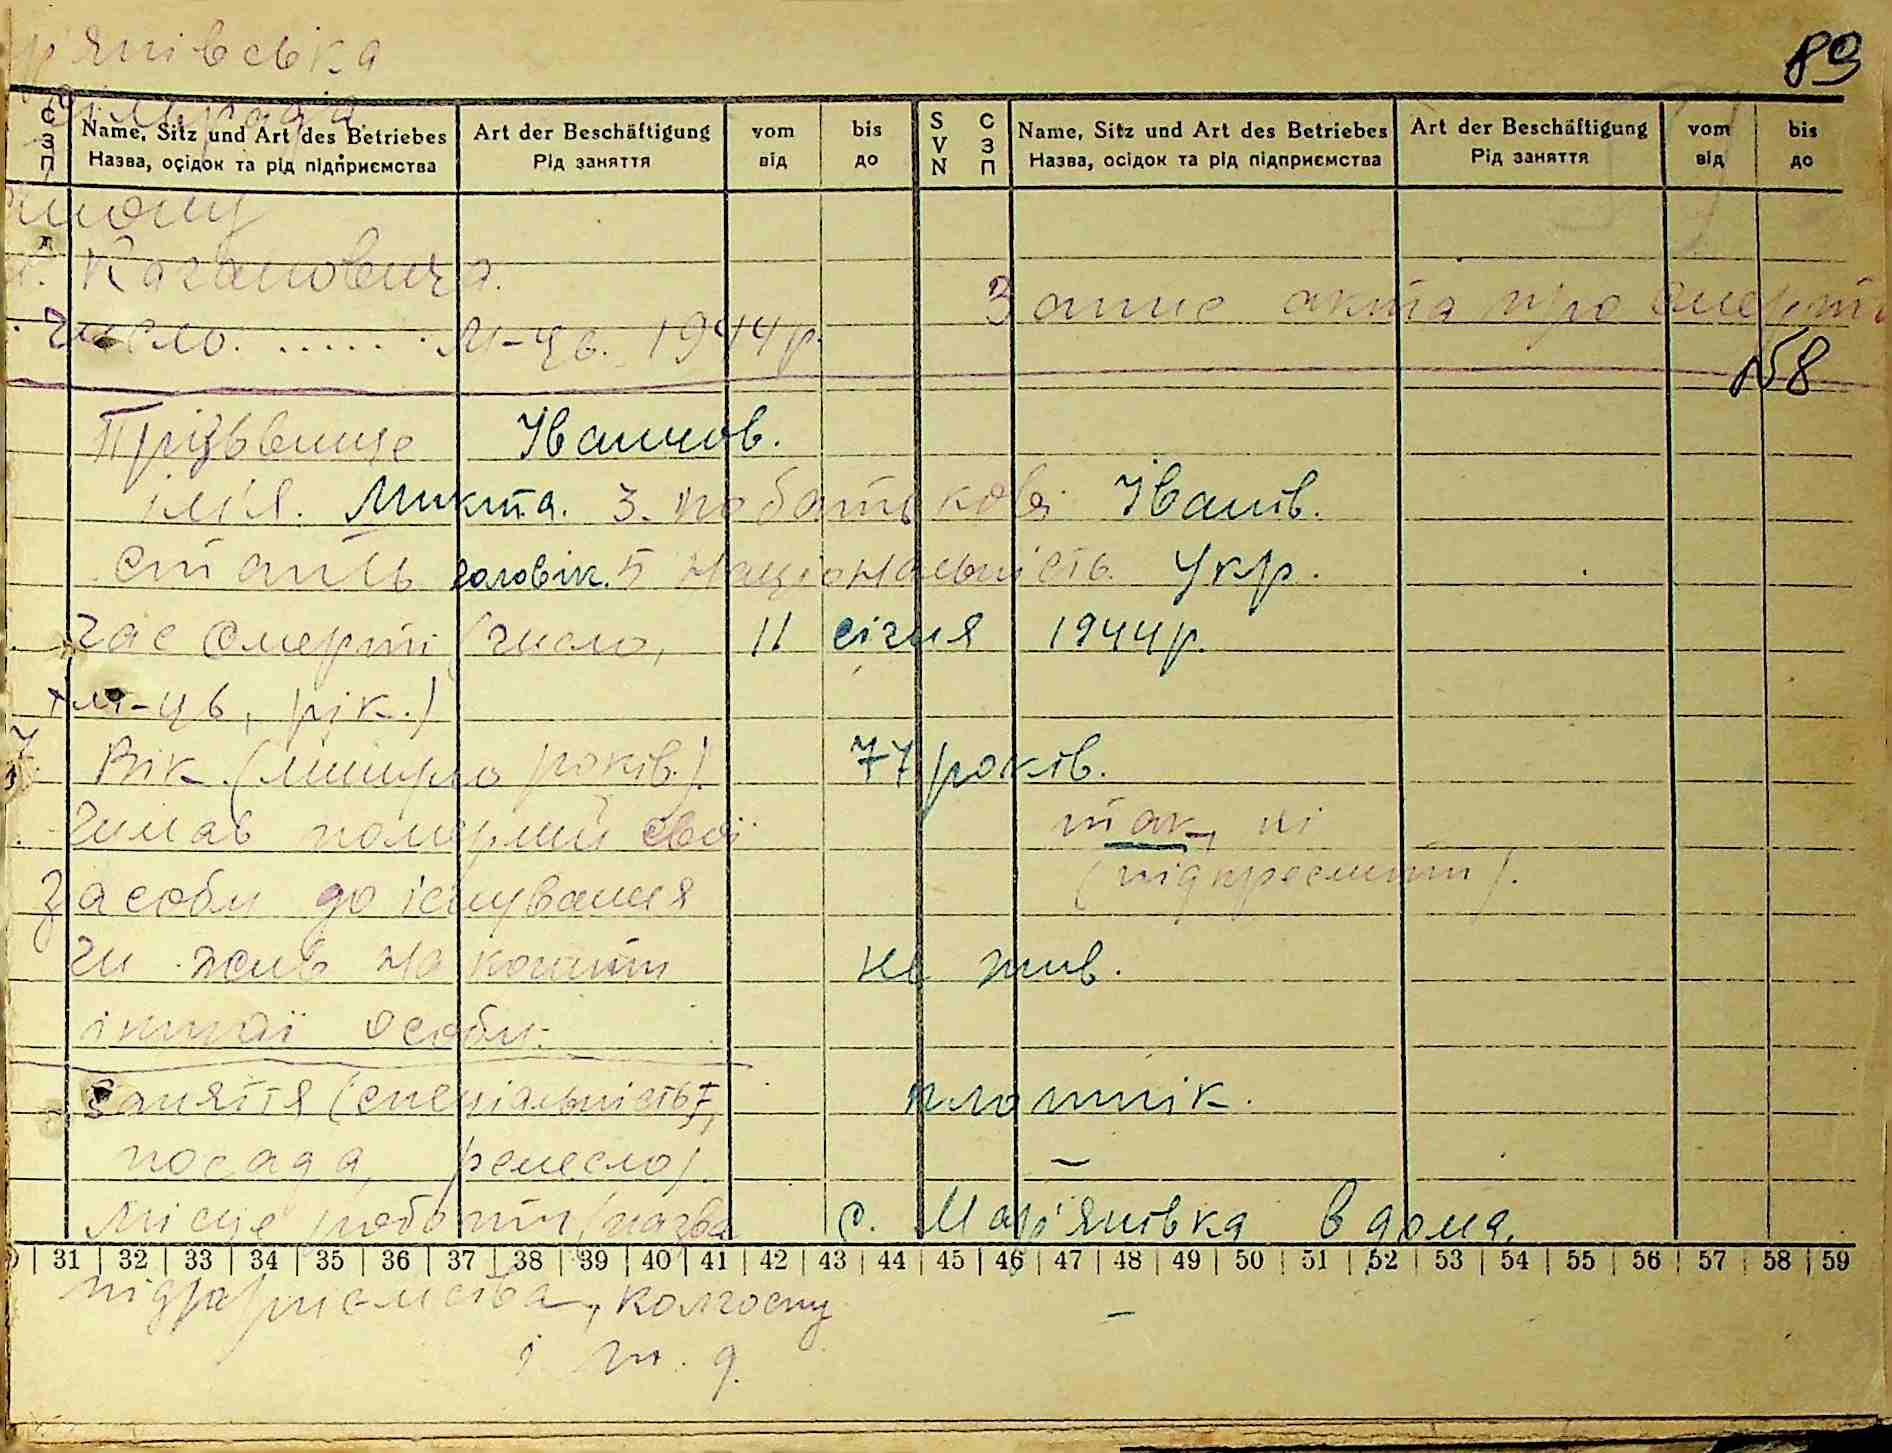 р'янівська
89
С З П Name, Sitz und Art des Betriebes Art der Beschäftigung vom bis S V N С З П Name, Sitz und Art des Betriebes Art der Beschäftigung vom bis
Назва, осідок та рід підприємства Рід заняття від до Назва, осідок та рід підприємства Рід заняття від до
Кагановича.
Запис акта про смерть
число. ..... м-ць. 1944 р.
№8
Прізвище Іванчов.
ім'я. Микита. 3. по батькові Іванів.
стать чоловік. 5 національність Укр.
час смерті (число, 11 січня 1944 р.
м-ць, рік.)
7 Вік. (минуло років.) 77 років.
чи мав померлий свої так, ні
засоби до існування (підкреслити).
чи жив на кошти не жив.
іншої особи.
заняття (спеціальність, плотнік.
посада, ремесло) –
Місце роботи (назва с. Мар'янівка вдома.
31 32 33 34 35 36 37 38 39 40 41 42 43 44 45 46 47 48 49 50 51 52 53 54 55 56 57 58 59
підприємства, колгоспу –
і т. д.